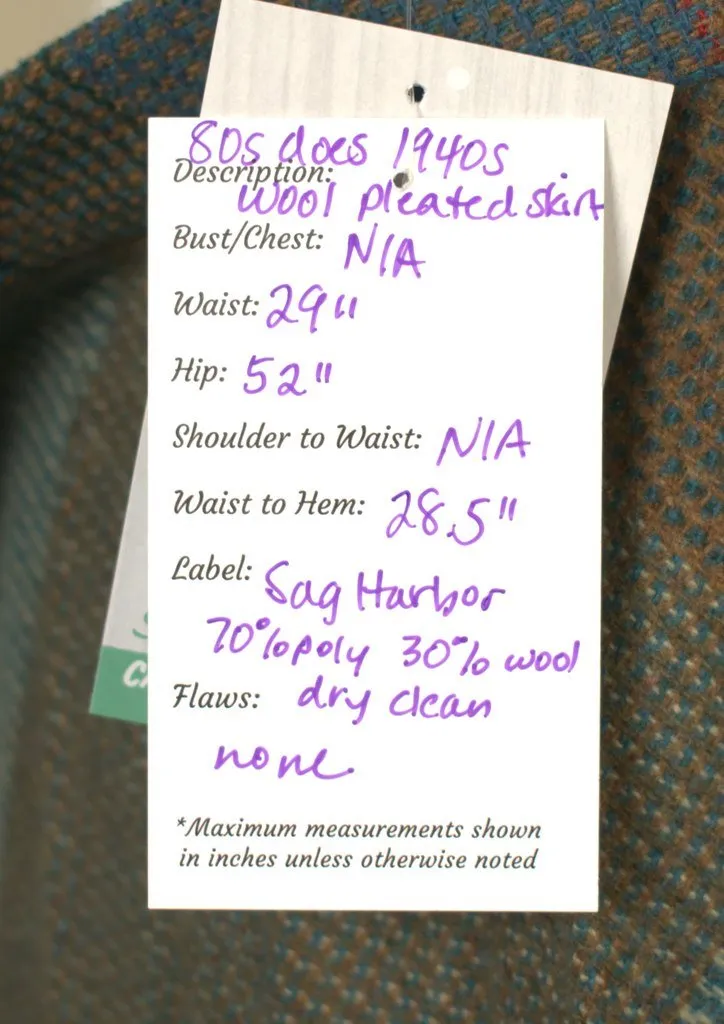 80s does 1940s
Description:
wool pleated skirt
Bust/Chest: N/A
Waist: 29"
Hip: 52"
Shoulder to Waist: N/A
Waist to Hem: 28.5"
Label: Sag Harbor
70% poly 30% wool
Flaws: dry clean
none
*Maximum measurements shown
in inches unless otherwise noted